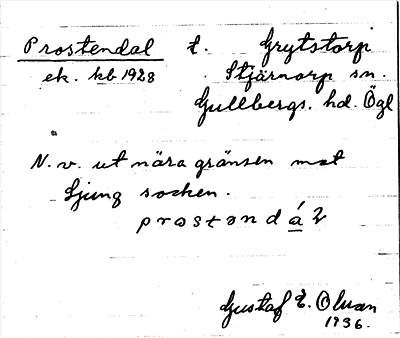 Prostendal t. Grytstorp
ek. kb 1928 Stjärnorp sn.
Gullbergs. hd. Ögl
N. v. ut nära gränsen mot
Ljung socken.
prostəndáɫ
Gustaf E. Olson
1936.